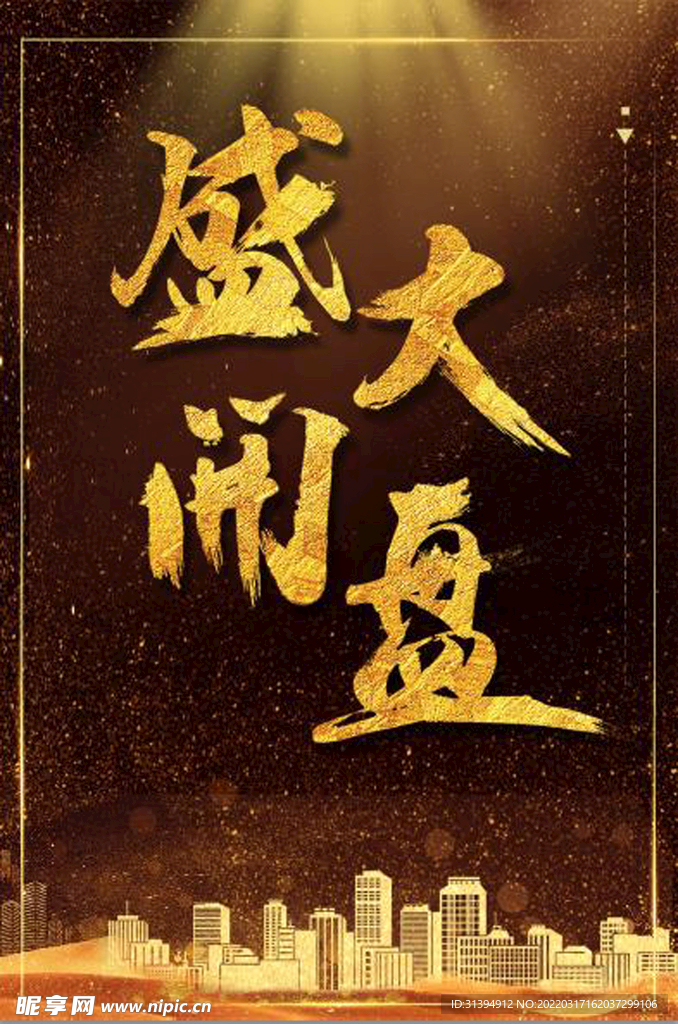 盛大
开盘
昵享网 www.nipic.cn
ID:31394912 NO:20220317162037299106